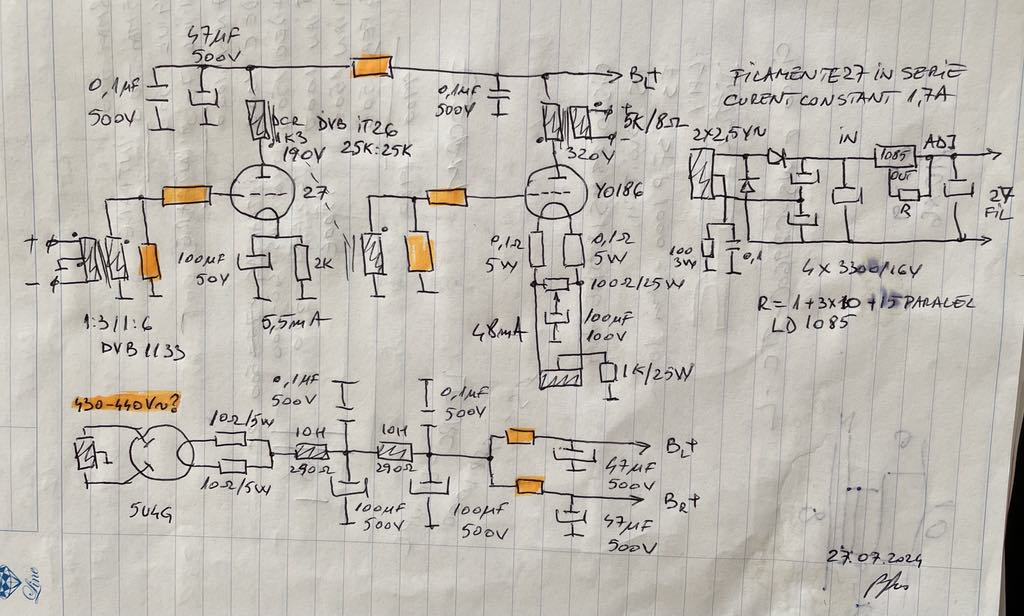 47µF
500V
0,1µF
500V
DCR
1K3
190V
DVB IT26
25K:25K
27
100µF
50V
2K
5,5mA
+
-
1:3/1:6
DVB 1133
0,1µF
500V
BL+
5K/8Ω
320V
YO186
0,1Ω
5W
0,1Ω
5W
100Ω/25W
100µF
100V
48mA
1K/25W
FILAMENTE 27 IN SERIE
CURENT CONSTANT 1,7A
2x2,5V~
IN
1085
ADJ
OUT
R
27
FIL
100
3W
0,1
4 x 3300/16V
R = 1+3x10 +15 PARALEL
LD 1085
430-440V~?
5U4G
10Ω/5W
10Ω/5W
10H
290Ω
0,1µF
500V
100µF
500V
10H
290Ω
0,1µF
500V
100µF
500V
BL+
47µF
500V
BR+
47µF
500V
27.07.2024
Line